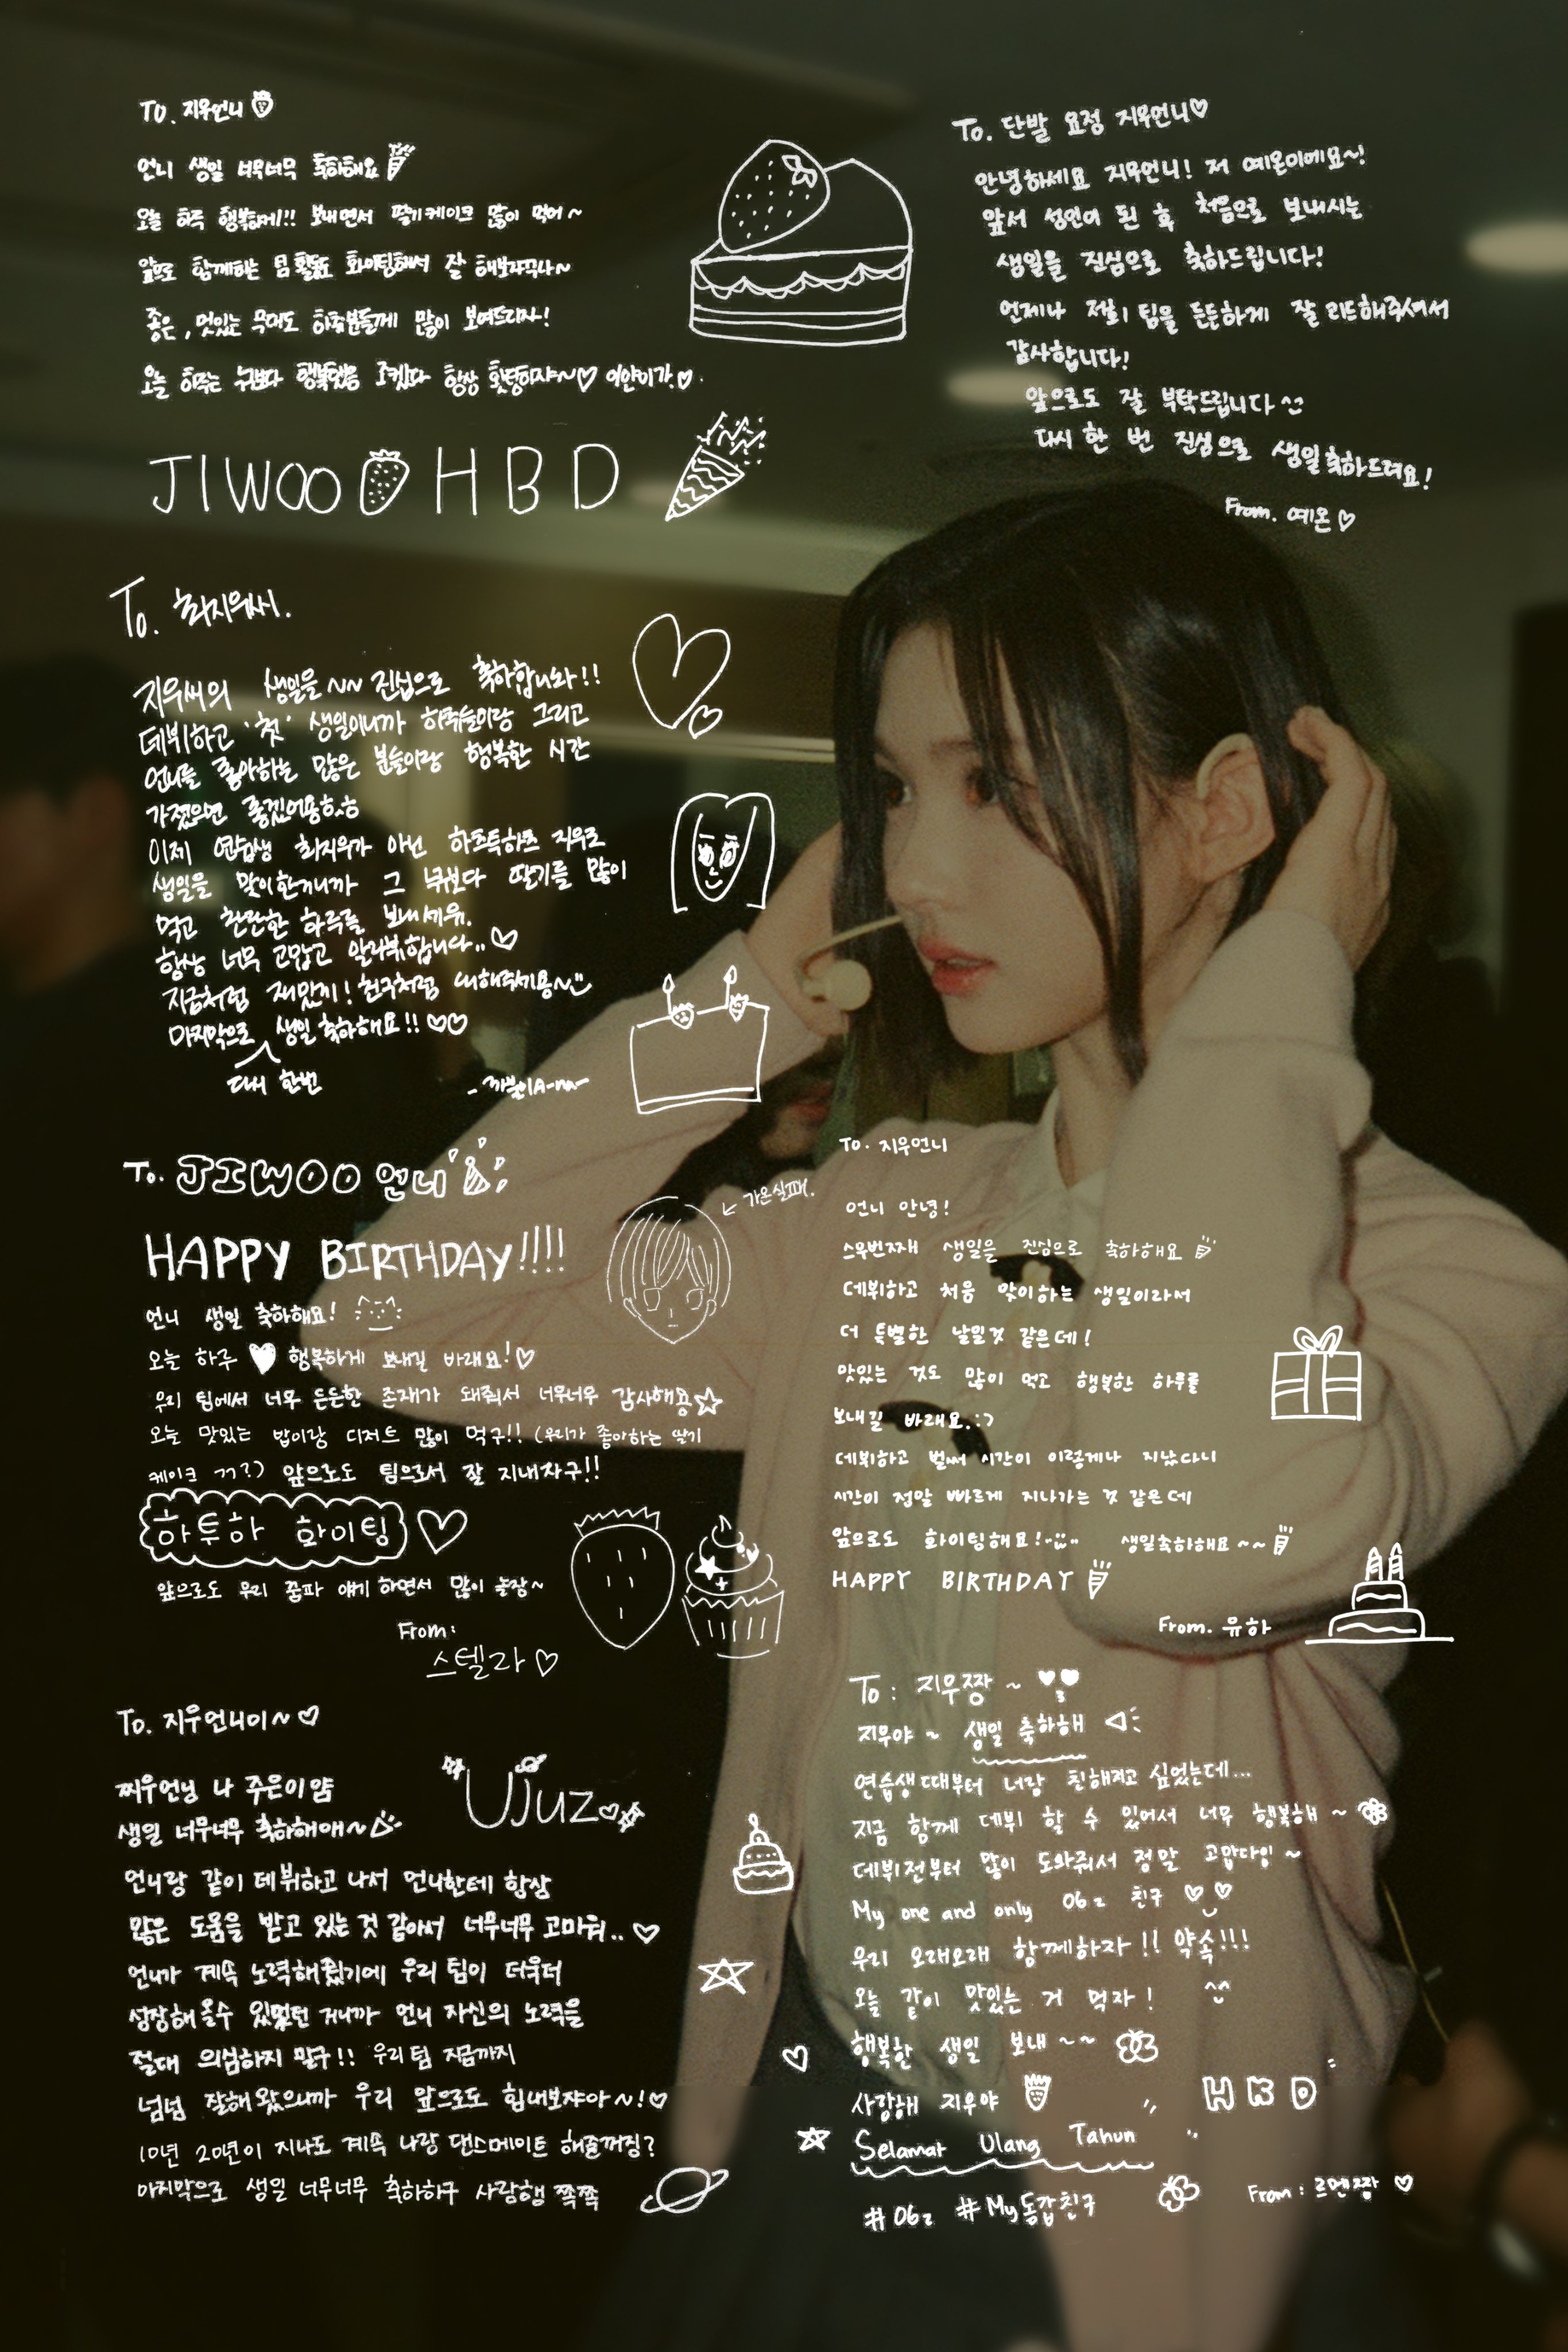 To. 지우언니
언니 생일 너무너무 축하해요
오늘 하루 행복하게!! 보내면서 딸기케이크 많이 먹어~
앞으로 함께하는 팀 활동도 화이팅해서 잘 해보자구나~
좋은, 멋있는 무대도 하츄분들께 많이 보여드리자!
오늘 하루는 누구보다 행복했음 좋겠다 항상 홧팅이쟈~♡ 이안이가.♡.
JIWOO HBD
To. 단발 요정 지우언니♡
안녕하세요 지우언니! 저 예온이에요~!
앞서 성인이 된 후 처음으로 보내시는
생일을 진심으로 축하드립니다!
언제나 저희 팀을 든든하게 잘 리드해주셔서
감사합니다!
앞으로도 잘 부탁드립니다^^
다시 한 번 진심으로 생일축하드려요!
From. 예온♡
To. 최지우씨.
지우씨의 생일을~~ 진심으로 축하합니다!!
데뷔하고 '첫' 생일이니까 하츄들이랑 그리고
언니를 좋아하는 많은 분들이랑 행복한 시간
가졌으면 좋겠어용ㅎㅎ
이제 연습생 최지우가 아닌 하츠투하츠 지우로
생일을 맞이한거니까 그 누구보다 딸기를 많이
먹고 찬란한 하루를 보내세유.
항상 너무 고맙고 알라뷰합니다..♡
지금처럼 재밌게! 친구처럼 대해주세용~
마지막으로 생일축하해요!! ♡♡
다시 한번
- 까불이A-na-
To. JIWOO 언니
HAPPY BIRTHDAY!!!!
← 가온실패.
언니 생일 축하해요!
오늘 하루 ♥ 행복하게 보내길 바래요!♡
우리 팀에서 너무 든든한 존재가 돼줘서 너무너무 감사해용☆
오늘 맛있는 밥이랑 디저트 많이 먹구!! (우리가 좋아하는 딸기
케이크 ㄲㄲ?) 앞으로도 팀으로서 잘 지내자구!!
하투하 화이팅 ♡
앞으로도 우리 춤파 얘기 하면서 많이 놀장~
From:
스텔라♡
To. 지우언니
언니 안녕!
스무번째 생일을 진심으로 축하해요
데뷔하고 처음 맞이하는 생일이라서
더 특별한 날일것 같은데!
맛있는 것도 많이 먹고 행복한 하루를
보내길 바래요.:)
데뷔하고 벌써 시간이 이렇게나 지났다니
시간이 정말 빠르게 지나가는 것 같은데
앞으로도 화이팅해요! 생일축하해요~~
HAPPY BIRTHDAY
From. 유하
To. 지우언니이~♡
찌우언닝 나 주은이얌
생일 너무너무 축하해애~
Ujuz
언니랑 같이 데뷔하고 나서 언니한테 항상
많은 도움을 받고 있는 것 같아서 너무너무 고마워..♡
언니가 계속 노력해줬기에 우리 팀이 더욱더
성장해올수 있었던 거니까 언니 자신의 노력을
절대 의심하지 말구!! 우리팀 지금까지
넘넘 잘해왔으니까 우리 앞으로도 힘내보쟈아~!♡
10년 20년이 지나도 계속 나랑 댄스메이트 해줄꺼징?
마지막으로 생일 너무너무 축하하구 사랑해 쪽쪽
To: 지우짱~ ♥♥
지우야~ 생일 축하해
연습생때부터 너랑 친해지고 싶었는데...
지금 함께 데뷔 할 수 있어서 너무 행복해~
데뷔전부터 많이 도와줘서 정말 고맙다잉~
My one and only 06z 친구 ♡♡
우리 오래오래 함께하자!! 약속!!!
오늘 같이 맛있는 거 먹자! ^^
행복한 생일 보내~~
사랑해 지우야
HBD
Selamat Ulang Tahun
#06z #My동갑친구
From: 르멘짱 ♡